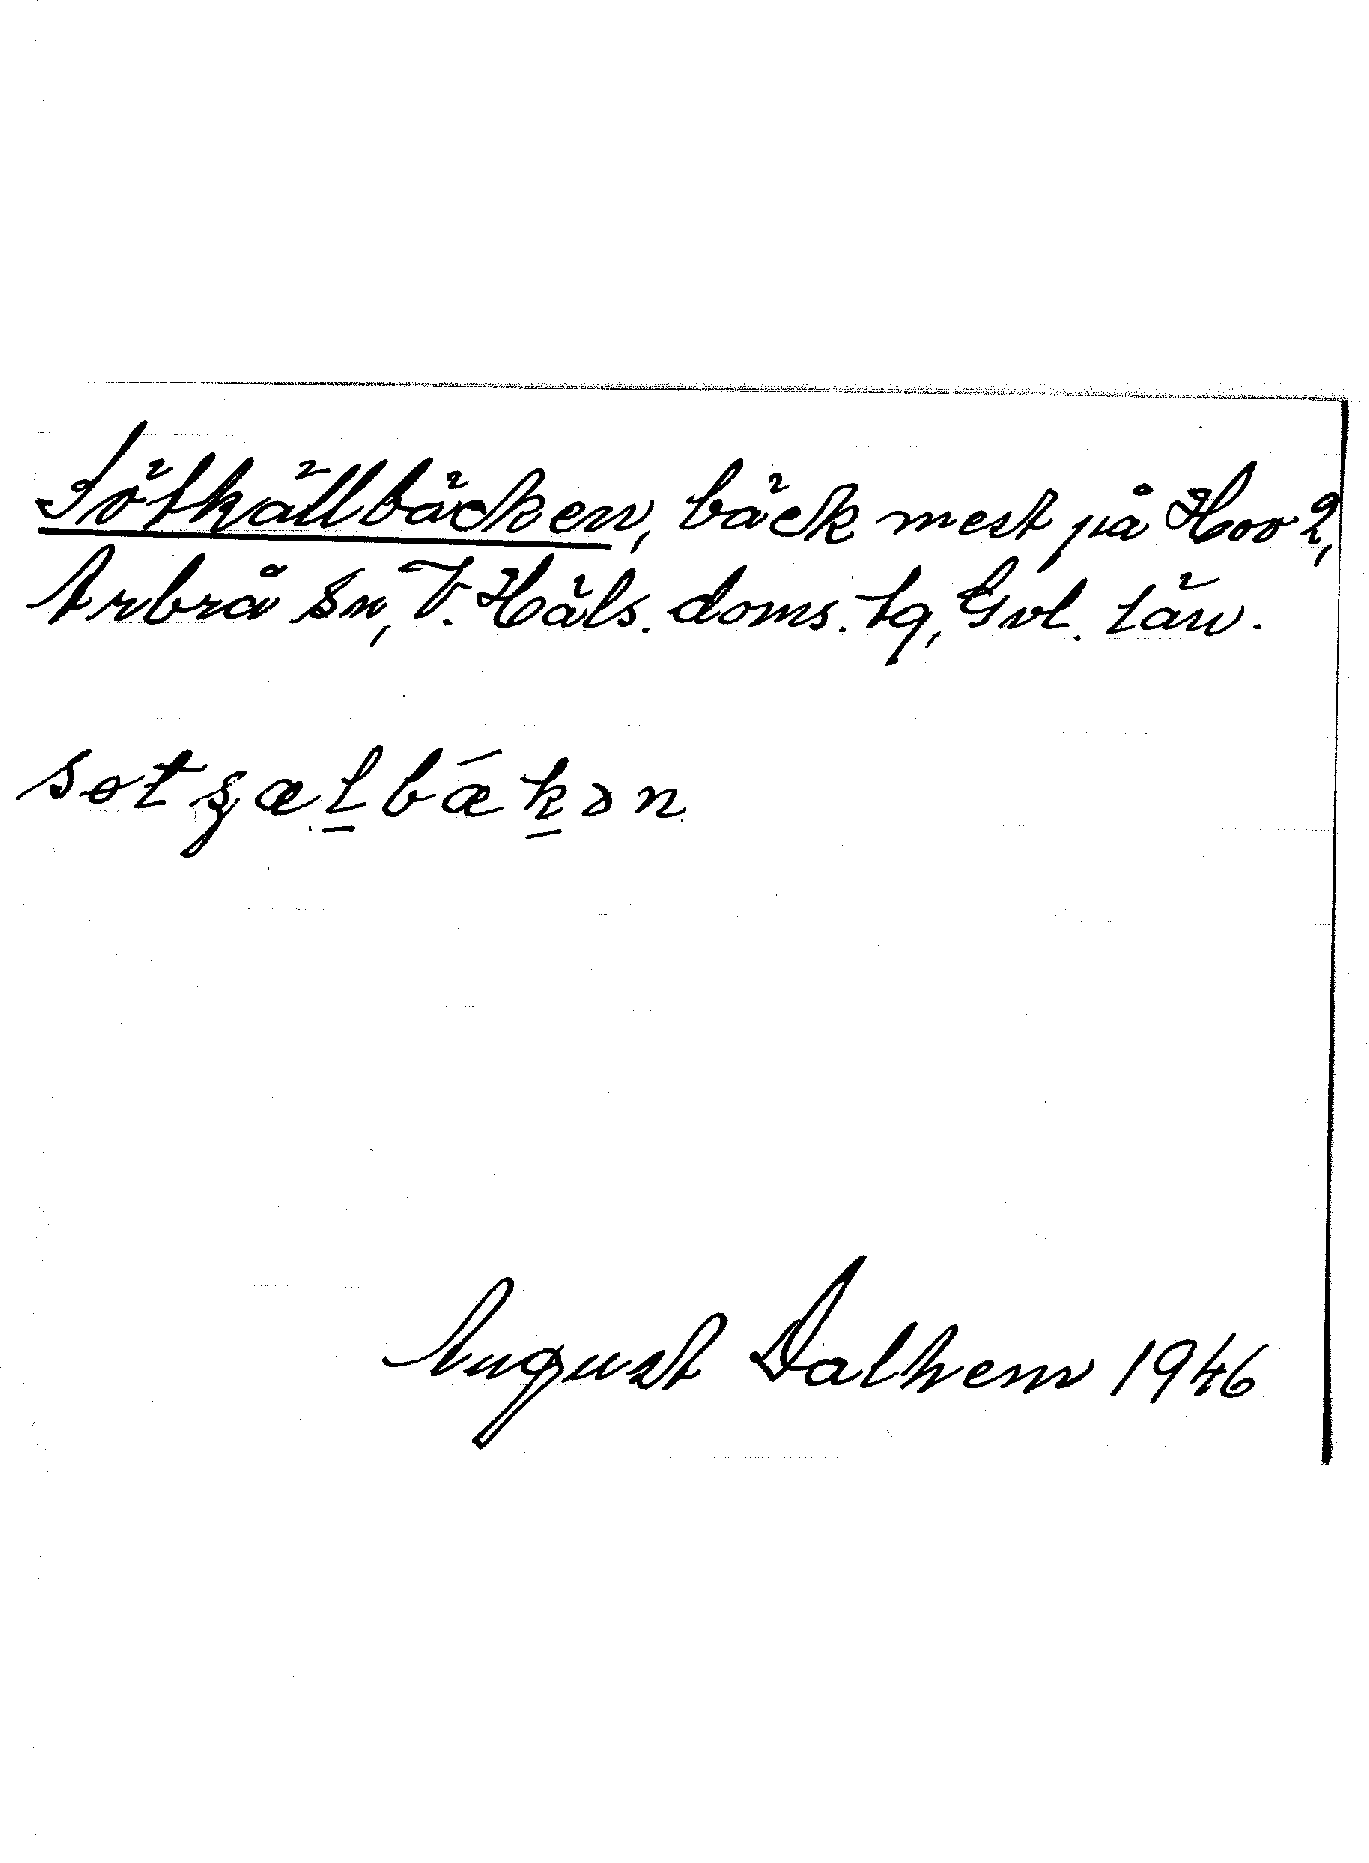 Sötkällbäcken, bäck mest på Hov 2,
Arbrå sn, V. Häls. doms. tg, Gvl. län.
søtʂæl̲bǽk̲ən
August Dalhem 1946